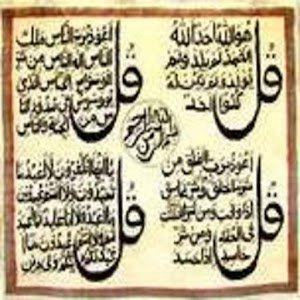 قل هو الله احد الله
الصمد لم يلد ولم
يولد ولم يكن له
كفوا احد
قل اعوذ برب الناس ملك
الناس اله الناس من شر
الوسواس الخناس الذى
يوسوس فى صدور الناس
من الجنة والناس
بسم الله الرحمن الرحيم
قل اعوذ برب الفلق من
شر ما خلق ومن شر غاسق
اذا وقب ومن شر النفثت
فى العقد ومن شر
حاسد اذا حسد
قل يا ايها الكفرون لا اعبد ما
تعبدون ولا انتم عبدون
ما اعبد ولا انا عابد ما عبد
تم ولا انتم عبدون ما ا
عبد لكم دينكم ولى دين